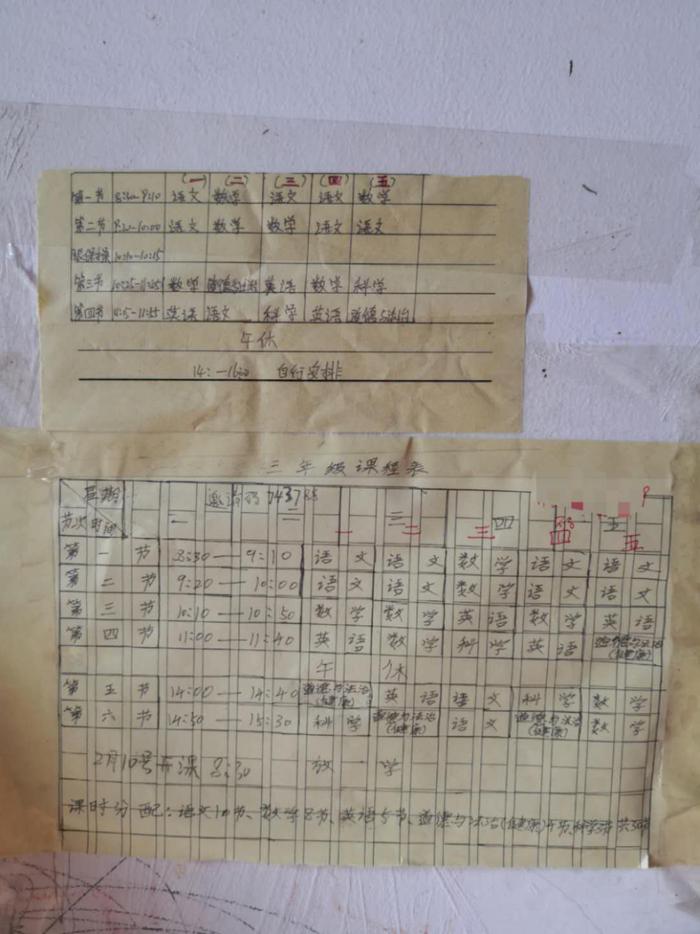 (一) (二) (三) (四) (五)
第一节 8:30-9:10 语文 数学 语文 语文 数学
第二节 9:20-10:00 语文 数学 数学 语文 语文
眼保操 10:10-10:15
第三节 10:25-11:05 数学 道德与法治 英语 数学 科学
第四节 11:15-11:55 英语 语文 科学 英语 道德与法治
午休
14:-16:30 自行安排
三年级课程表
星期 邀请码743788
节次 时间 一 二 三 四 五
一 二 三 四 五
第一节 8:30—9:10 语文 语文 数学 语文 语文
第二节 9:20—10:00 语文 语文 数学 语文 语文
第三节 10:10—10:50 数学 数学 英语 数学 英语
第四节 11:00—11:40 英语 数学 科学 英语 道德与法治(健康)
午休
第五节 14:00—14:40 道德与法治(健康) 英语 语文 科学 数学
第六节 14:50—15:30 科学 道德与法治(健康) 语文 道德与法治(健康) 数学
2月10号开课 8:30 放学
课时分配:语文10节、数学8节、英语5节、道德与法治(健康)4节、科学3节 共30节